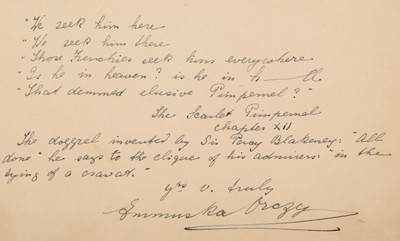 "We seek him here
"We seek him there
"Those Frenchies seek him everywhere
"Is he in heaven? is he in h—ll
"That demmed elusive Pimpernel?"
The Scarlet Pimpernel
Chapter XII
The doggrel invented by Sir Percy Blakeney: "All
done" he says to the clique of his admirers: "in the
tying of a cravat."
Yrs v. truly
Emmuska Orczy